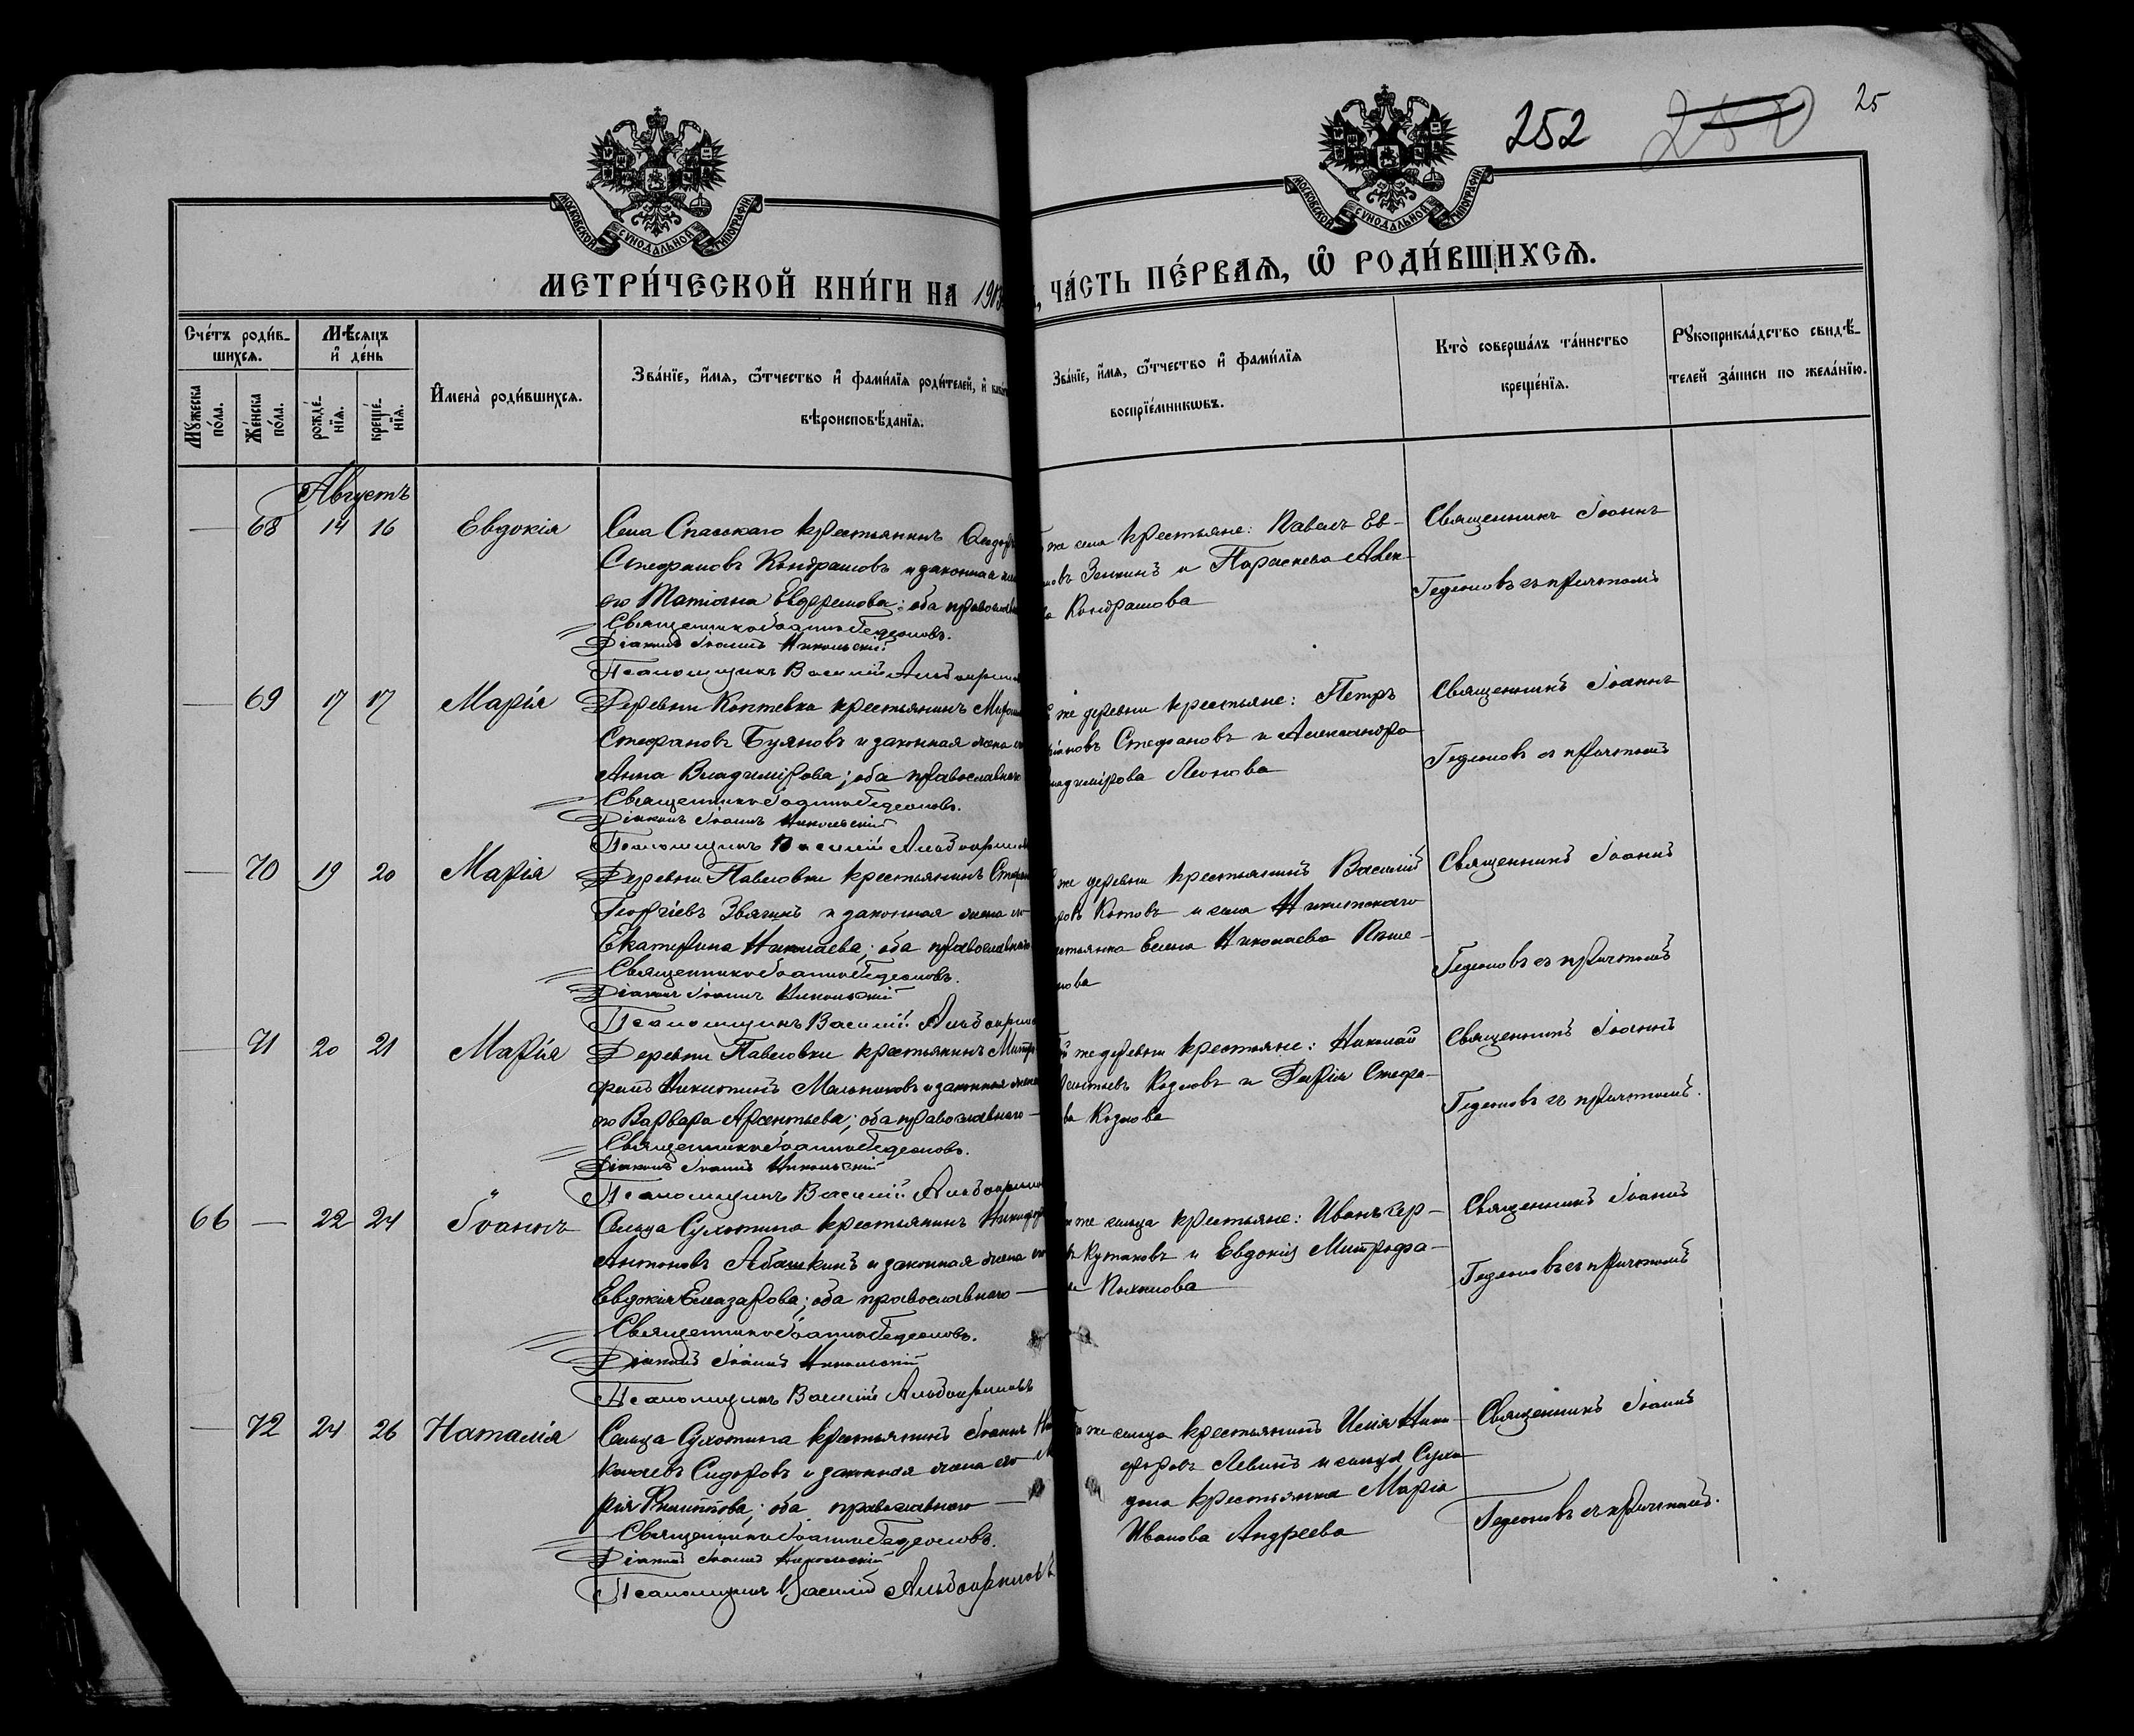 252 250 25
МОСКОВСКОЙ СѴНОДАЛЬНОЙ ТИПОГРАФІИ
МОСКОВСКОЙ СѴНОДАЛЬНОЙ ТИПОГРАФІИ
МЕТРИ́ЧЕСКОЙ КНИ́ГИ НА 1913
ЧА́СТЬ ПЕ́РВАѦ, Ѿ РОДИ́ВШИХСѦ.
Сче́тъ роди́в-
шихсѧ.
Мꙋ́жеска по́ла.
Же́нска по́ла.
Мѣ́сѧцъ
и҆ де́нь
рожде́-
нїѧ.
креще́-
нїѧ.
И҆мена̀ роди́вшихсѧ.
Зва́нїе, и҆́мѧ, ѻ҆́тчество и҆ фами́лїѧ роди́телей, и҆
вѣроисповѣ́данїѧ.
Зва́нїе, и҆́мѧ, ѻ҆́тчество и҆ фами́лїѧ
воспрїе́мникѡвъ.
Кто̀ соверша́лъ та́инство
креще́нїѧ.
Рꙋкоприкла́дство свидѣ́-
телей за́писи по жела́нїю.
Августъ
— 68 14 16 Евдокія
Села Спасскаго крестьянинъ
Стефановъ Кондрашовъ и законная
его Татіана Евфремова; оба
Священникъ Іоаннъ Гедеоновъ.
Діаконъ Іоаннъ Никольскій
Псаломщикъ Василій
же села крестьяне: Павелъ Ев-
Зенкинъ и Параскева Алек-
Кондрашова
Священникъ Іоаннъ
Гедеоновъ съ причтомъ
— 69 17 17 Марія
Деревни Коптевка крестьянинъ
Стефановъ Буяновъ и законная жена
Анна Владимірова; оба православнаго
Священникъ Іоаннъ Гедеоновъ.
Діаконъ Іоаннъ Никольскій
Псаломщикъ Василій
же деревни крестьяне: Петръ
Стефановъ и Александра
Леонова
Священникъ Іоаннъ
Гедеоновъ съ причтомъ
— 70 19 20 Марія
Деревни Павловки крестьянинъ
Георгіевъ Звягинъ и законная жена его
Екатерина Николаева; оба православнаго
Священникъ Іоаннъ Гедеоновъ.
Діаконъ Іоаннъ Никольскій
Псаломщикъ Василій
же деревни крестьянинъ Василій
Котовъ и села Никитскаго
Елена Николаева
Священникъ Іоаннъ
Гедеоновъ съ причтомъ
— 71 20 21 Марія
Деревни Павловки крестьянинъ Митро-
фанъ Никитинъ Мельниковъ и законная жена
его Варвара Арсентьева; оба православнаго —
Священникъ Іоаннъ Гедеоновъ.
Діаконъ Іоаннъ Никольскій
Псаломщикъ Василій
же деревни крестьяне: Николай
Козловъ и Дарія Стефа-
Козлова
Священникъ Іоаннъ
Гедеоновъ съ причтомъ.
66 — 22 24 Іоаннъ
Сельца Сухотина крестьянинъ
Антоновъ Абашкинъ и законная жена его
Евдокія Елеазарова; оба православнаго —
Священникъ Іоаннъ Гедеоновъ.
Діаконъ Іоаннъ Никольскій
Псаломщикъ Василій
же сельца крестьяне: Иванъ
и Евдокія Митрофа-
Священникъ Іоаннъ
Гедеоновъ съ причтомъ
— 72 24 26 Наталія
Сельца Сухотина крестьянинъ Іоаннъ Ни-
колаевъ Сидоровъ и законная жена его Ма-
рія Филиппова; оба православнаго —
Священникъ Іоаннъ Гедеоновъ.
Діаконъ Іоаннъ Никольскій
Псаломщикъ Василій
же сельца крестьянинъ Илія Ники-
форовъ Левинъ и сельца Сухо-
дола крестьянка Марія
Иванова Андреева
Священникъ Іоаннъ
Гедеоновъ съ причтомъ.